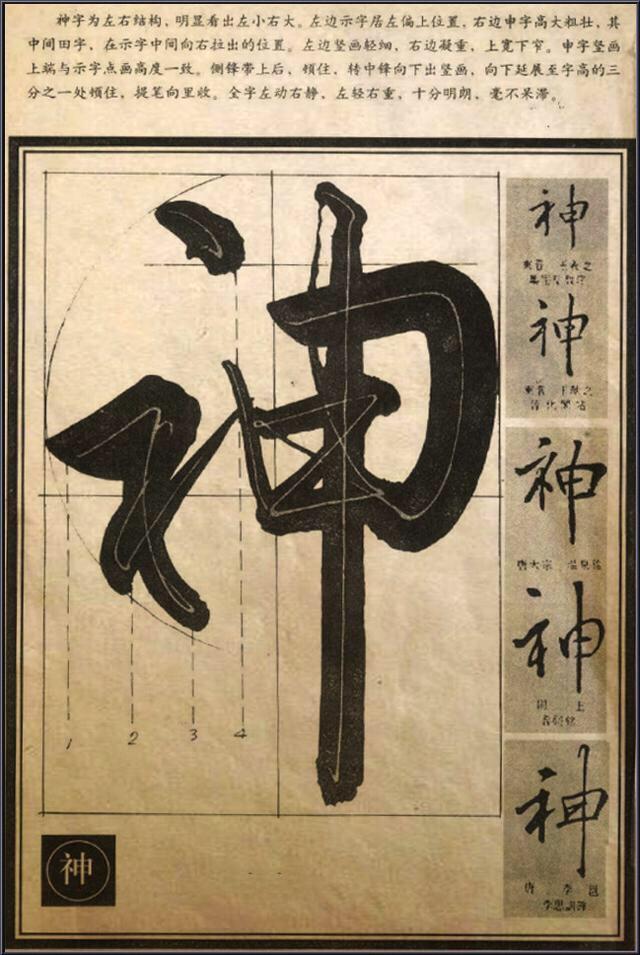 神字为左右结构,明显看出左小右大。左边示字居左偏上位置,右边申字高大粗壮,其
中间田字,在示字中间向右拉出的位置。左边竖画轻细,右边凝重,上宽下窄。申字竖画
上端与示字点画高度一致。侧锋带上后,顿住,转中锋向下出竖画,向下延展至字高的三
分之一处顿住,提笔向里收。全字左动右静,左轻右重,十分明朗,毫不呆滞。
神
1 2 3 4
神
神
东晋 王献之
神
唐太宗 温泉铭
神
同上
神
唐 李邕
李思训碑
神